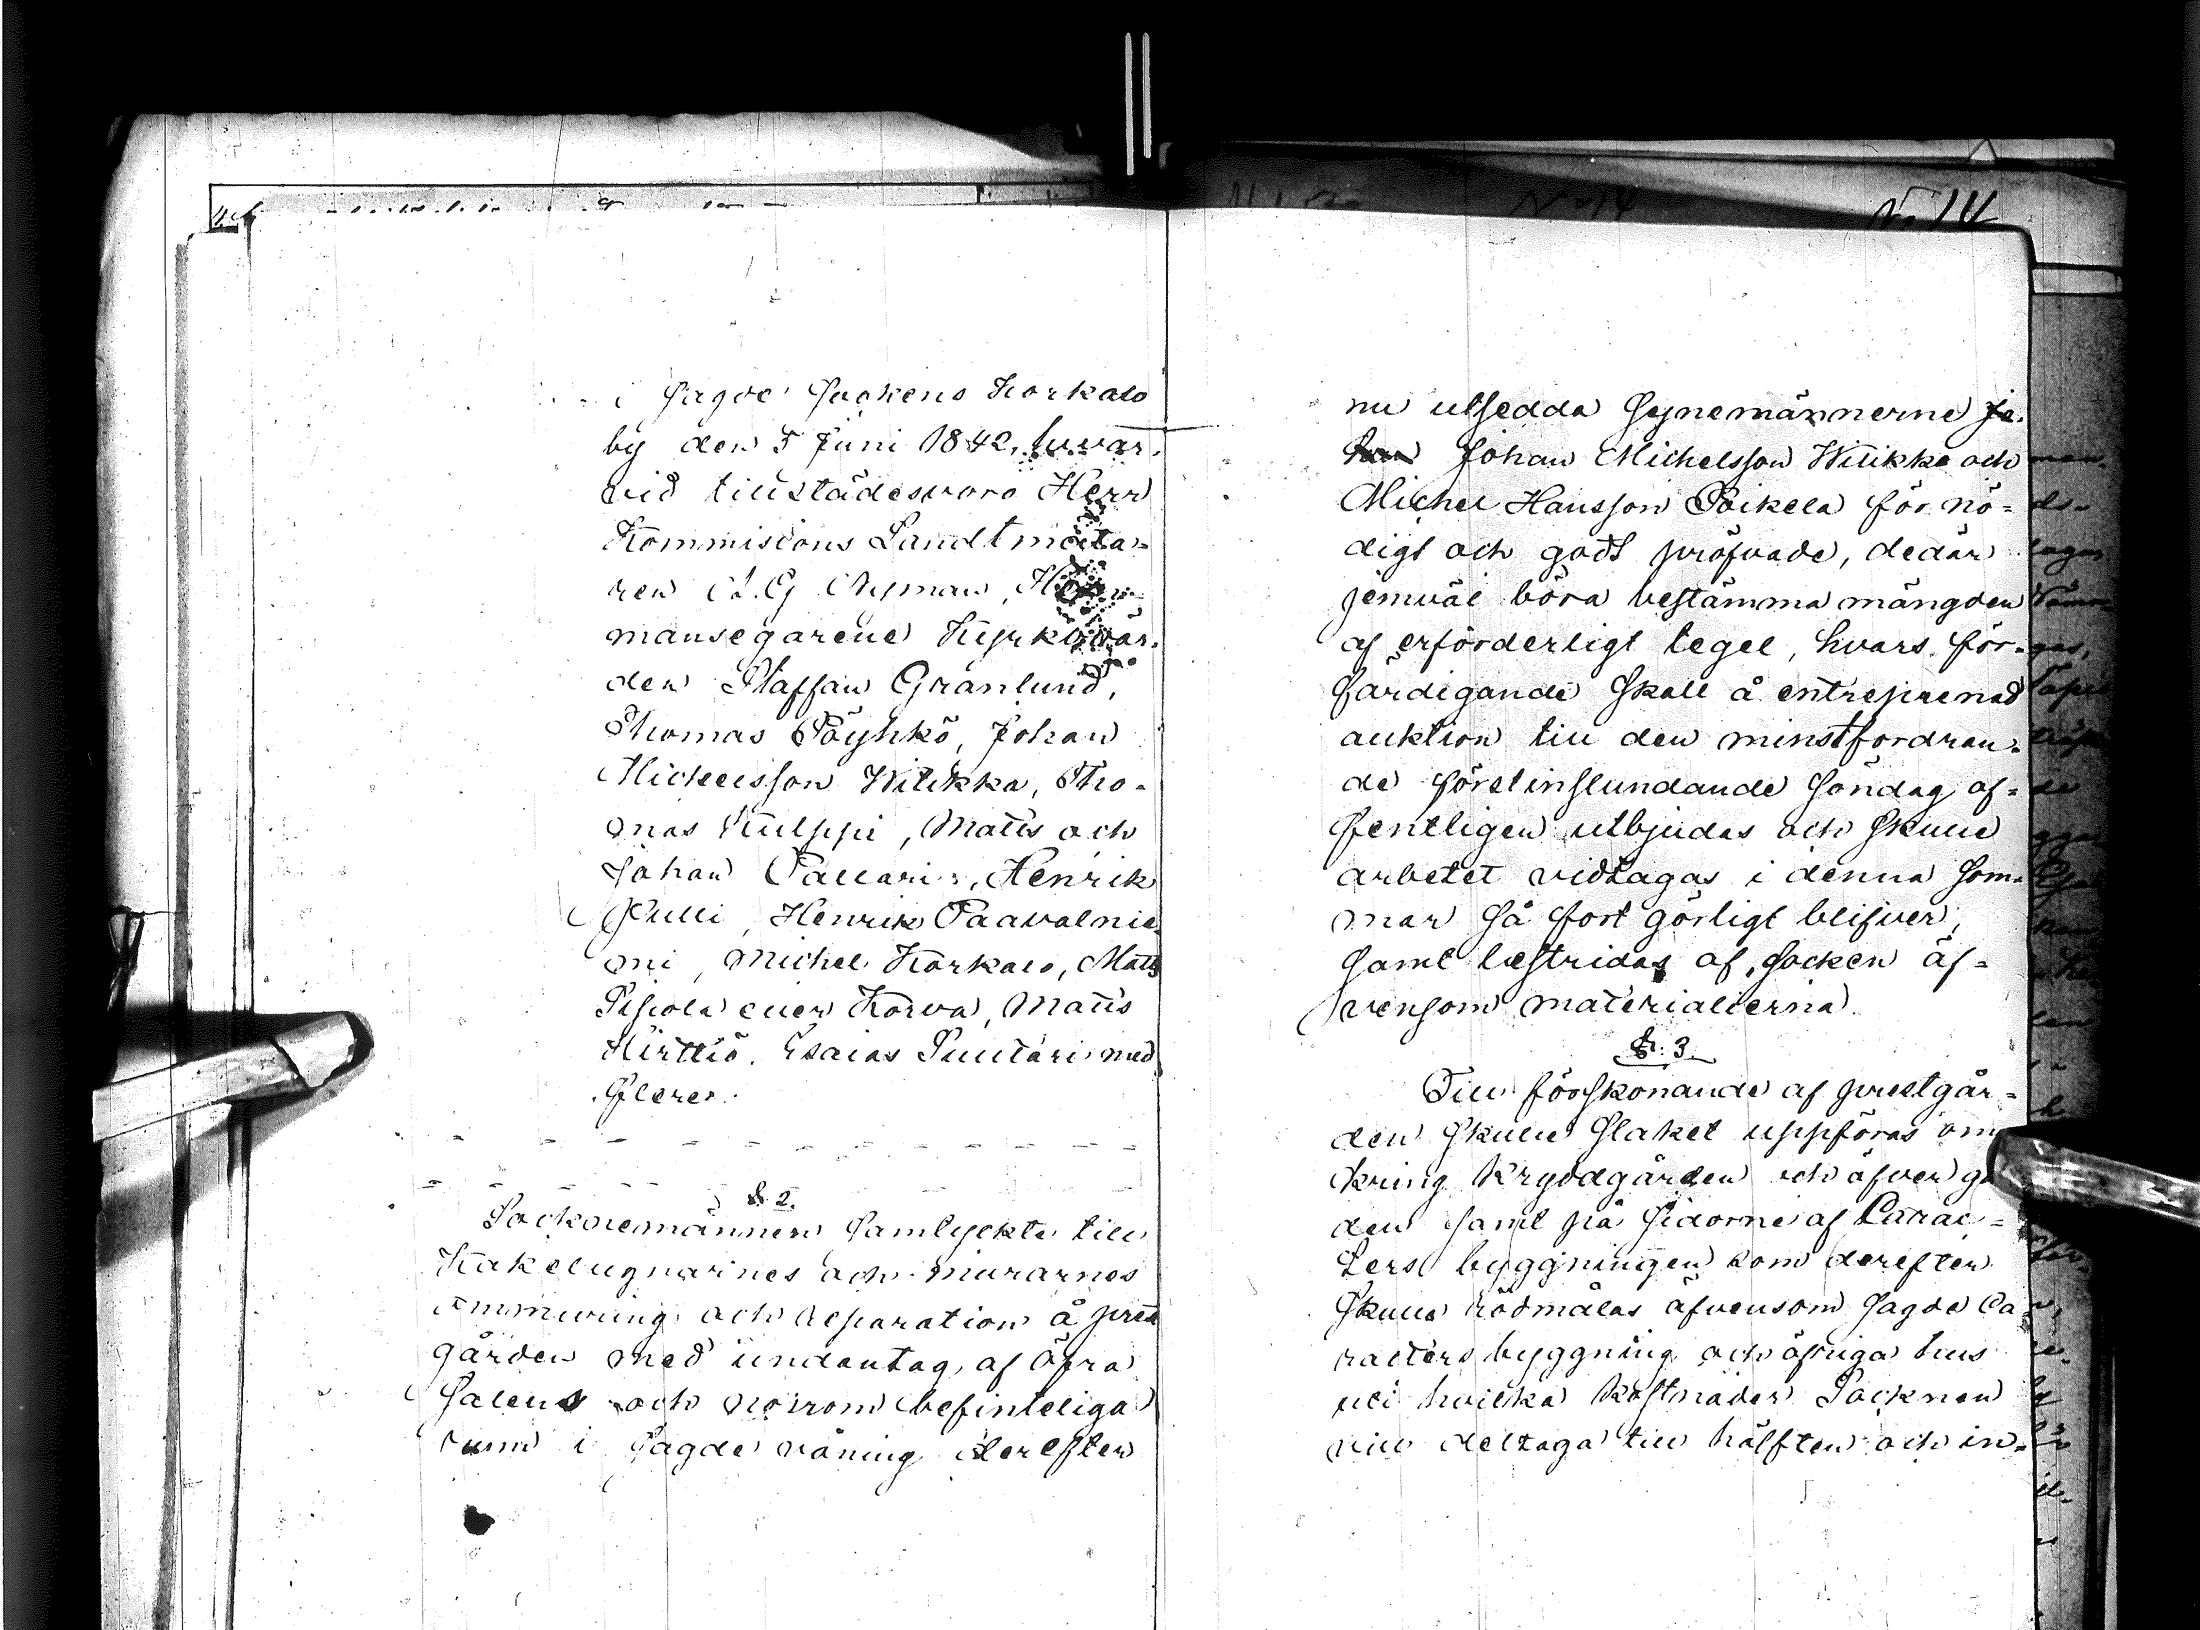 i sagde Sockens Korkalo
by den 5 Juni 1842, hvar-
vid tillstädesvoro Herr
Kommisions Landtmäta-
ren C.G Nyman, Hem-
mansegarene Kyrkovär-
den Staffan Granlund,
Thomas Pöyhkö, Johan
Michelsson Wilikka, Tho-
mas Kulppi, Matts och
Johan Pallari, Henrik
Pulli, Henrik Paavalnie-
mi, Michel Korkalo, Matts
eller Korva, Matts
Hirttiö, Esaias med
flerer.
§ 2.
Socknemännen samtyckte till
Kakelugnarnes och murarnes
ommuring och reparation å prest
gården med undantag af öfra
salens och norrom befinteliga
rum i sagde våning derefter
No 14
nu utsedda synemännerne Jo-
han Johan Michelsson Wilikka och
Michel Hansson Poikela för nö-
digt och godt pröfvade, dedär
jemväl böra bestämma mängden
af erforderligt tegel, hvars för-
färdigande skall å entreprenad
auktion till den minstfordran-
de förstinstundande söndag of-
fentligen utbjudas och skulle
arbetet vidtagas i denna Som-
mar så fort görligt blifver,
samt bestridas af Socken äf-
vensom materialierna.
§. 3.
Till förskonande af prestgår-
den skulle staket uppföras om-
kring Krydgården och äfven
den samt på sidorne af Carac-
ters byggningen som derefter
skulle rödmålas äfvensom sagde Ca-
racters byggning och öfriga hus
uti hvilka kostnader Socknen
vill deltaga till hälften och in-